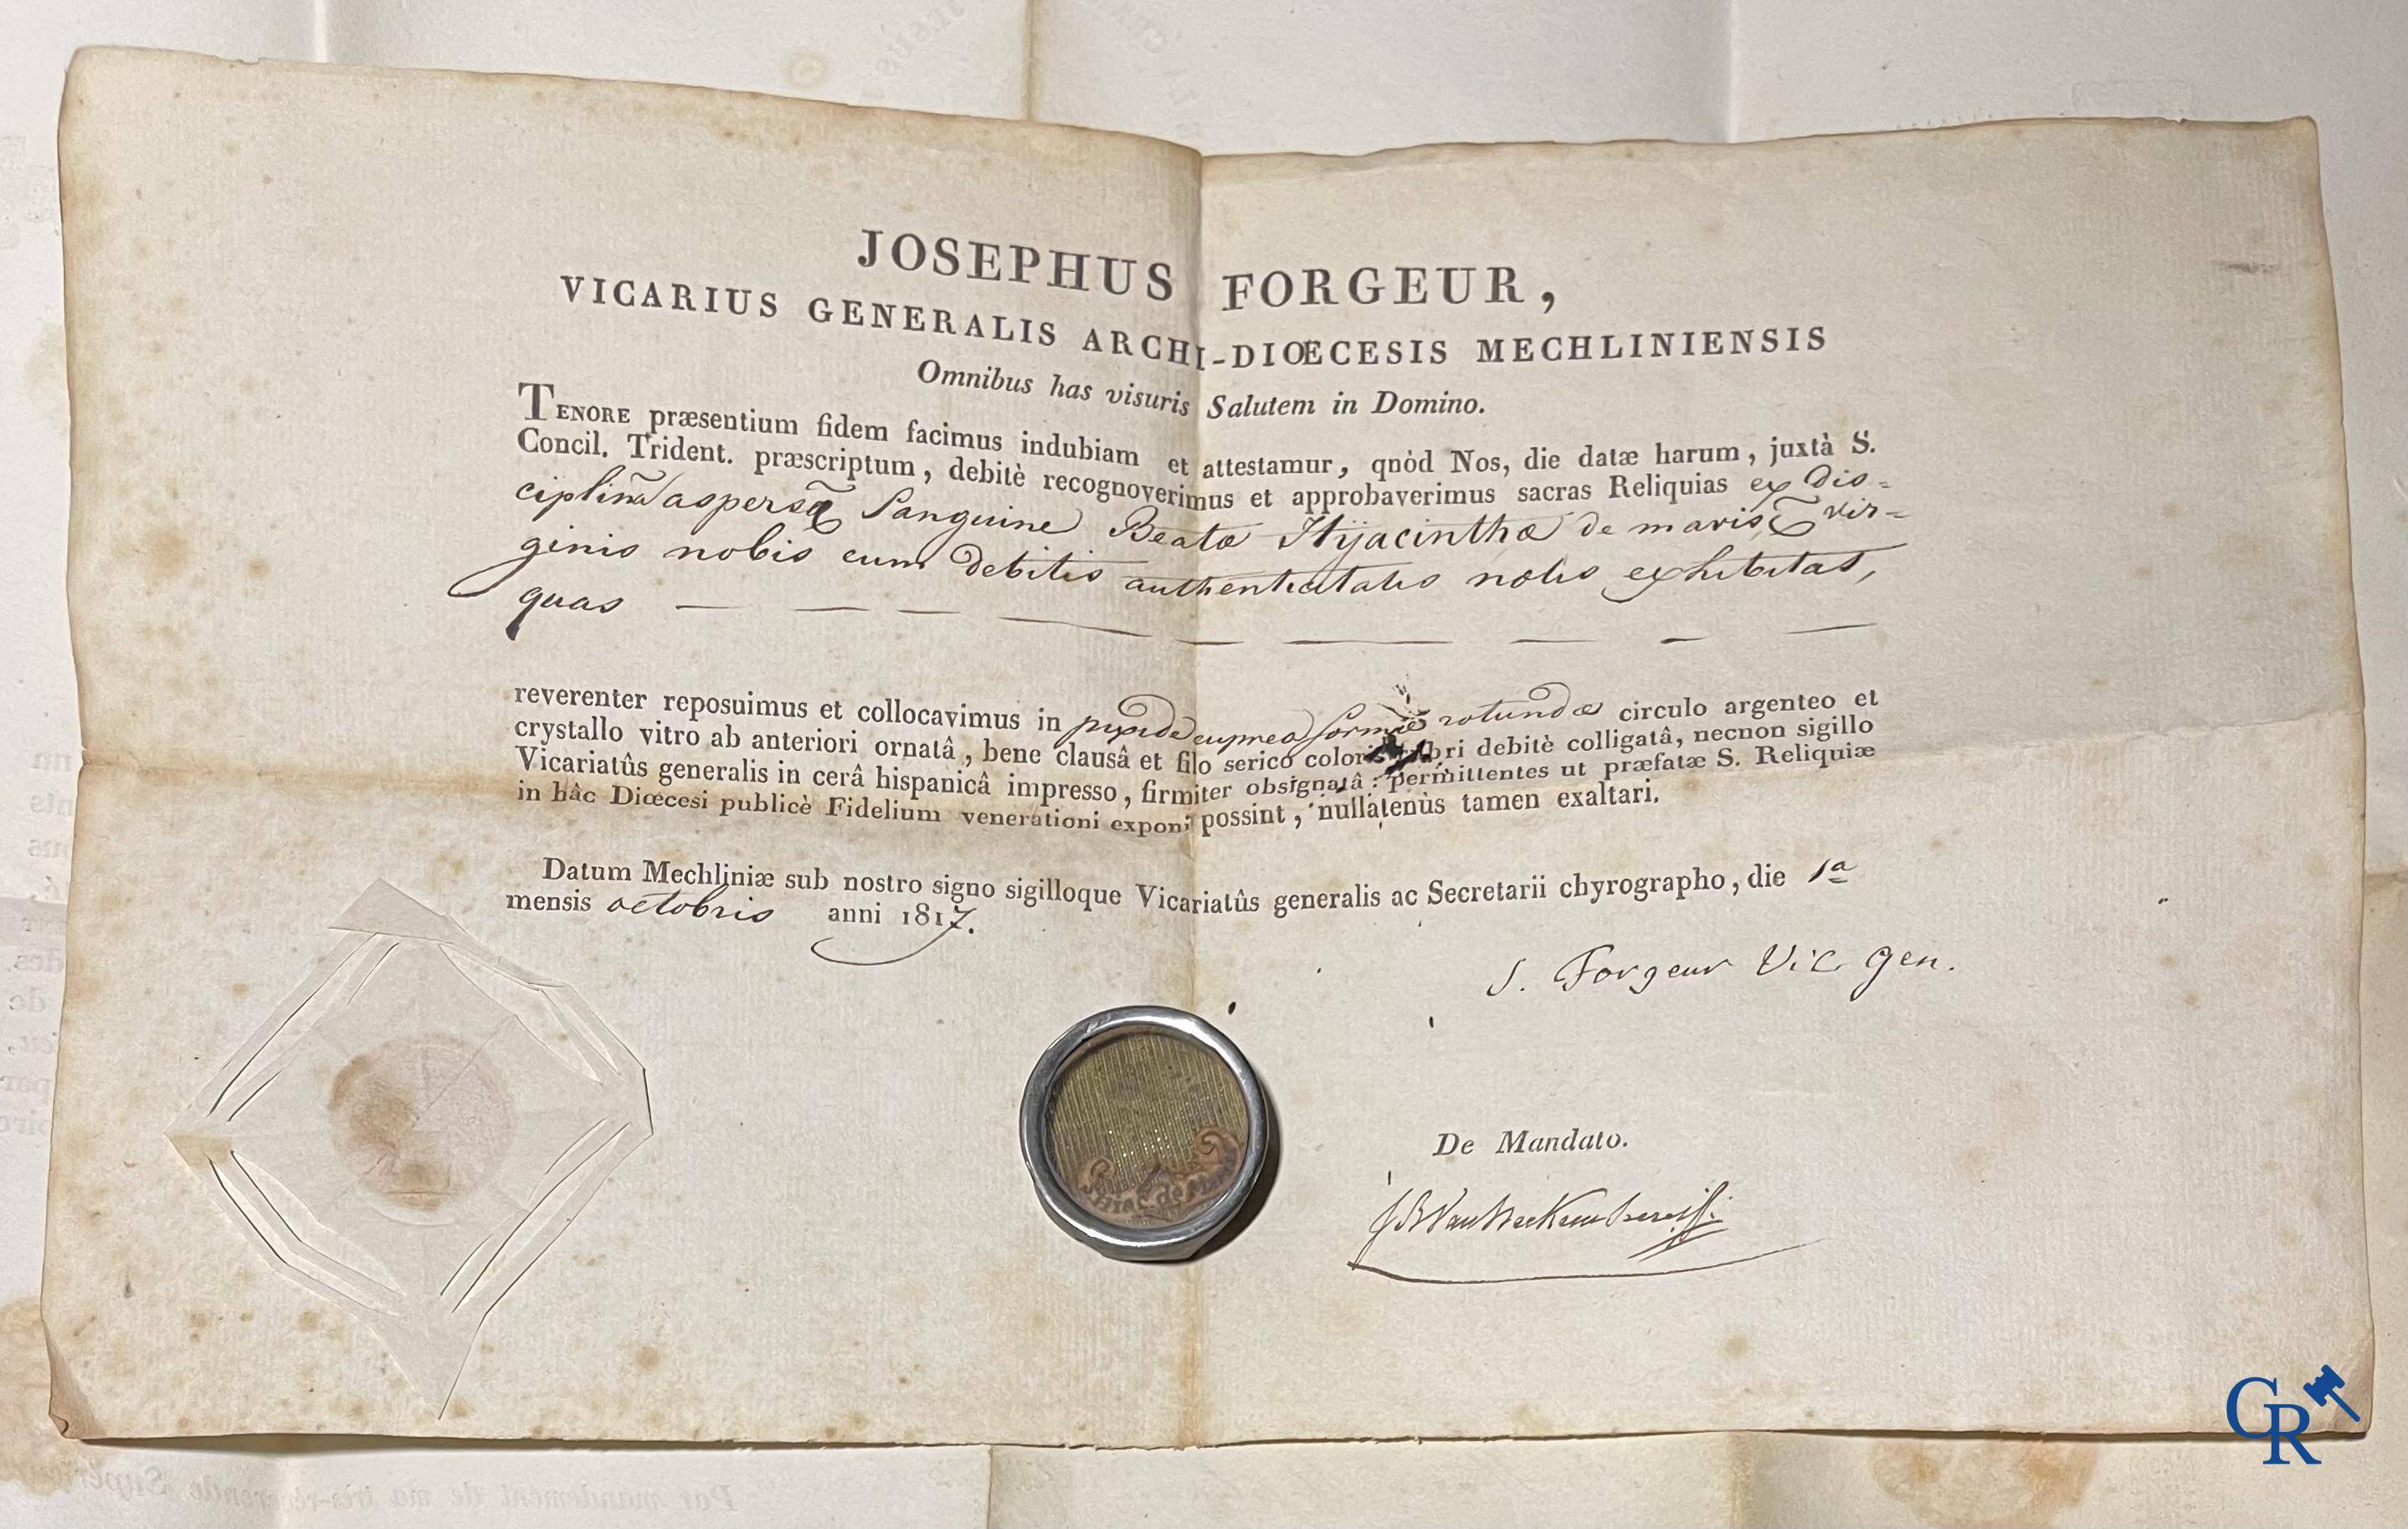 JOSEPHUS FORGEUR,
VICARIUS GENERALIS ARCHI-DIŒCESIS MECHLINIENSIS
Omnibus has visuris Salutem in Domino.
TENORE præsentium fidem facimus indubiam et attestamur, qnòd Nos, die datæ harum, juxtà S.
Concil. Trident. præscriptum, debitè recognoverimus et approbaverimus sacras Reliquias ex Dis=
ciplinã aspersã Sanguine Beatæ Hyacinthæ de mariscõ vir=
ginis nobis cum debitis authenticitatis nobis exhibitas,
quas
reverenter reposuimus et collocavimus in pyxide cuprea formæ rotundæ circulo argenteo et
crystallo vitro ab anteriori ornatâ, bene clausâ et filo serico coloris rubri debitè colligatâ, necnon sigillo
Vicariatûs generalis in cerâ hispanicâ impresso, firmiter obsignatâ: permittentes ut præfatæ S. Reliquiæ
in hâc Diœcesi publicè Fidelium venerationi exponi possint, nullatenùs tamen exaltari.
Datum Mechliniæ sub nostro signo sigilloque Vicariatûs generalis ac Secretarii chyrographo, die 1a
mensis octobris anni 1817.
J. Forgeur Vic Gen.
De Mandato.
de
CR
Par mandement de ma très-révérente